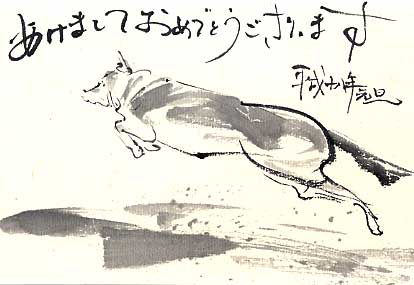 あけましておめでとうございます
平成十八年元旦